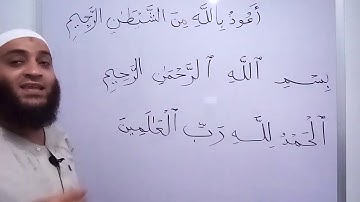 أَعُوذُ بِاللَّهِ مِنَ الشَّيْطَٰنِ الرَّجِيمِ
بِسْمِ ٱللَّهِ ٱلرَّحْمَٰنِ ٱلرَّحِيمِ
ٱلْحَمْدُ لِلَّهِ رَبِّ ٱلْعَٰلَمِينَ